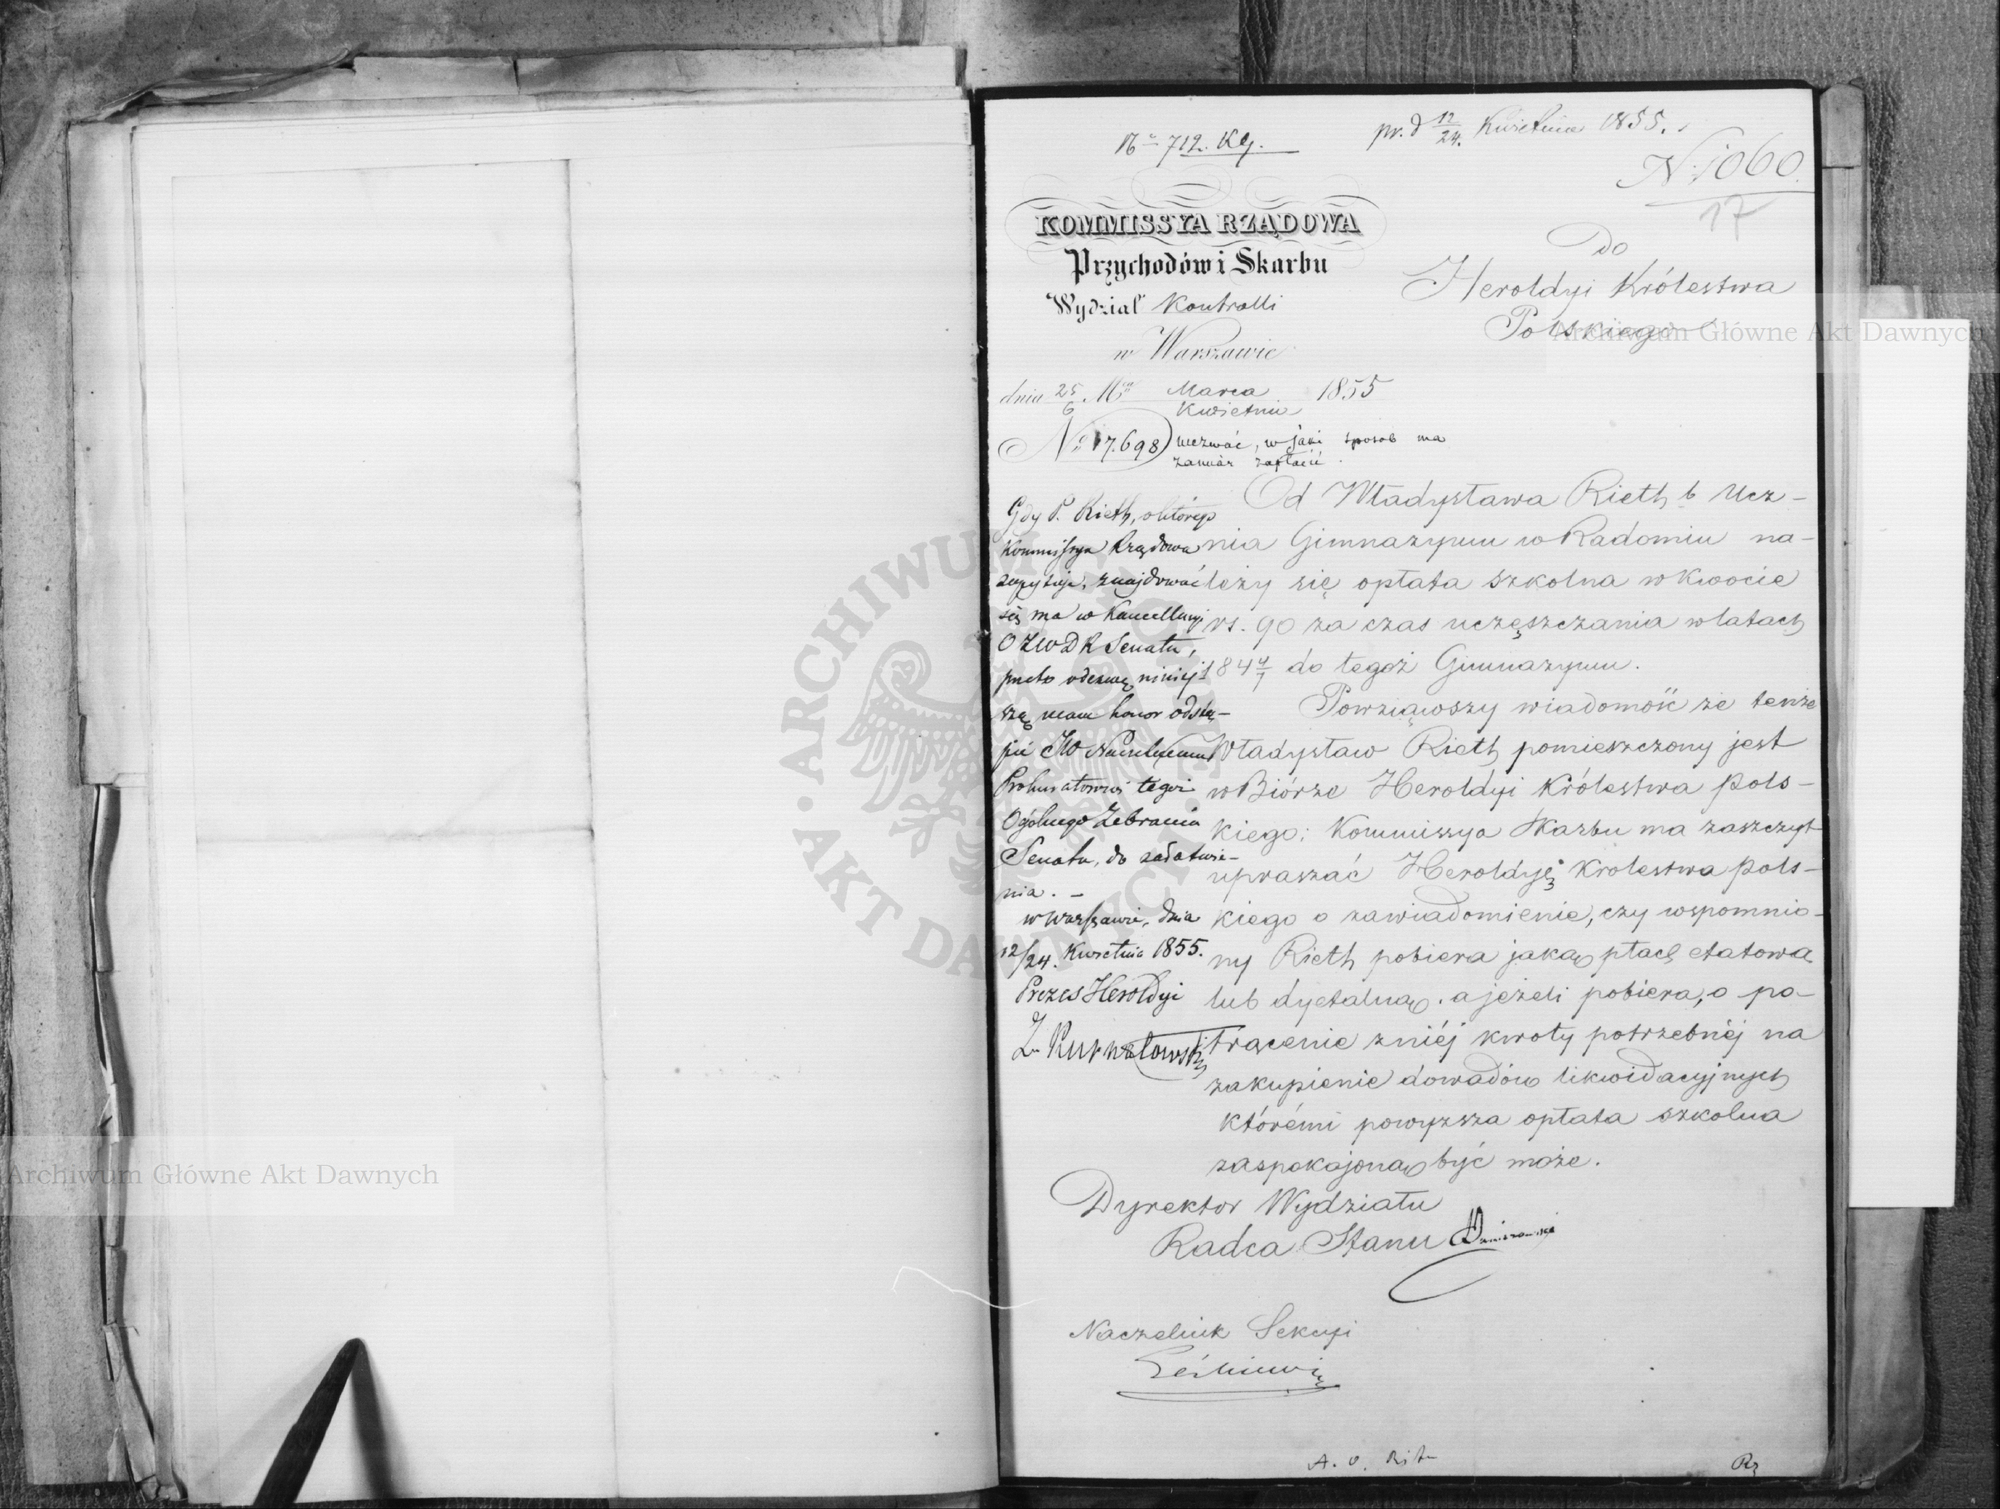 712. Kg.
pr. d 12/24. Kwietnia 1855.
N. 1060.
17
KOMMISSYA RZĄDOWA
Przychodów i Skarbu
Wydział Kontrolli
w Warszawie
dnia 25/6 Marca/Kwietnia 1855
N: 17.698
wezwać, w jaki sposób ma
zamiar zapłacić.
Do
Heroldyi Królestwa
Polskiego
Od Władysława Rieth b Ucz-
nia Gimnazyum w Radomiu na-
leży się opłata szkolna w kwocie
rs. 90 za czas uczęszczania w latach
184 do tegoż Gimnazyum.
Powziąwszy wiadomość że tenże
Władysław Rieth pomieszczony jest
w Biórze Heroldyi Królestwa Pols-
kiego; Kommissya Skarbu ma zaszczyt
upraszać Heroldyę Krolestwa Pols-
kiego o zawiadomienie, czy wspomnio-
ny Rieth pobiera jaką płacę etatową
lub dyetalną, a jeżeli pobiera, o po-
trącenie zniéj kwoty potrzebnéj na
zakupienie dowodów likwidacyjnych
któremi powyższa opłata szkolna
zaspokojoną być może.
Dyrektor Wydziału
Radca Stanu
Naczelnik Sekcyi
Gdy P. Rieth, o którego
Kommissya Rządowa
zapytuje, znajdować
się ma w Kancellaryi
O Z W D R Senatu,
przeto odezwę niniej-
szą mam honor odstą-
pić JW Naczelnemu
Prokuratorowi tegoż
Ogólnego Zebrania
Senatu, do załatwie-
nia. -
w Warszawie, dnia
12/24. Kwietnia 1855.
Prezes Heroldyi
Archiwum Główne Akt Dawnych
Archiwum Główne Akt Dawnych
ARCHIWUM GŁÓWNE AKT DAWNYCH